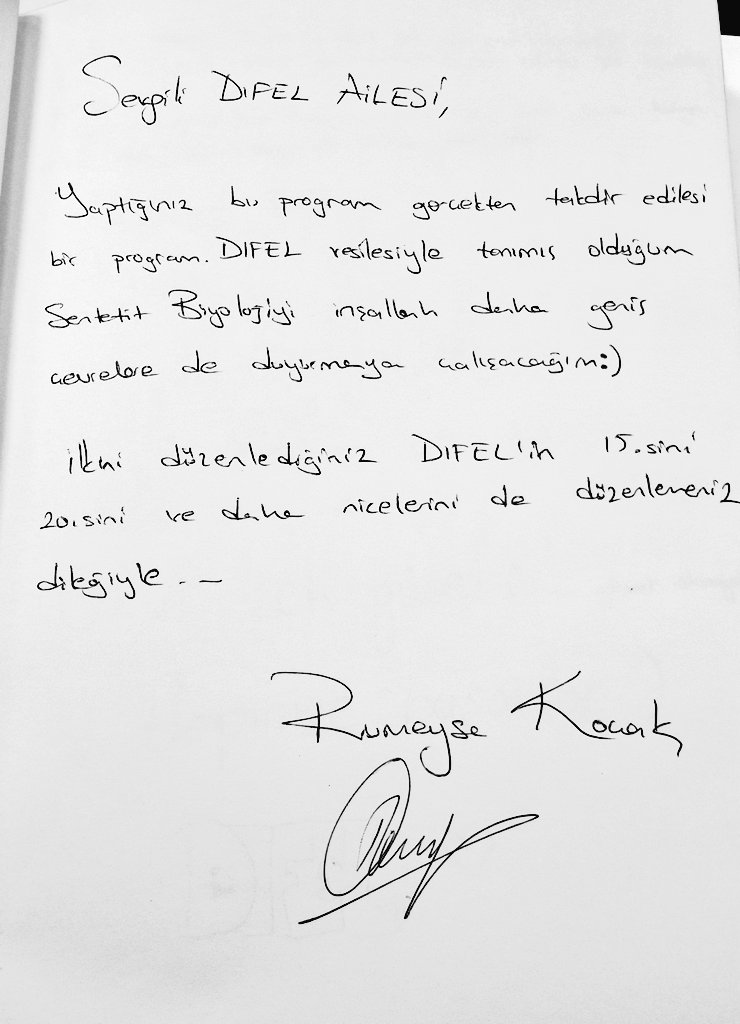 Sevgili DIFEL AİLESİ,
Yaptığınız bu program gerçekten takdir edilesi
bir program. DIFEL vesilesiyle tanımış olduğum
Sentetik Biyolojiyi inşallah daha geniş
çevrelere de duyurmaya çalışacağım:)
İlkini düzenlediğiniz DIFEL'in 15.sini
20.sini ve daha nicelerini de düzenlemeniz
dileğiyle...
Rumeysa Koçak